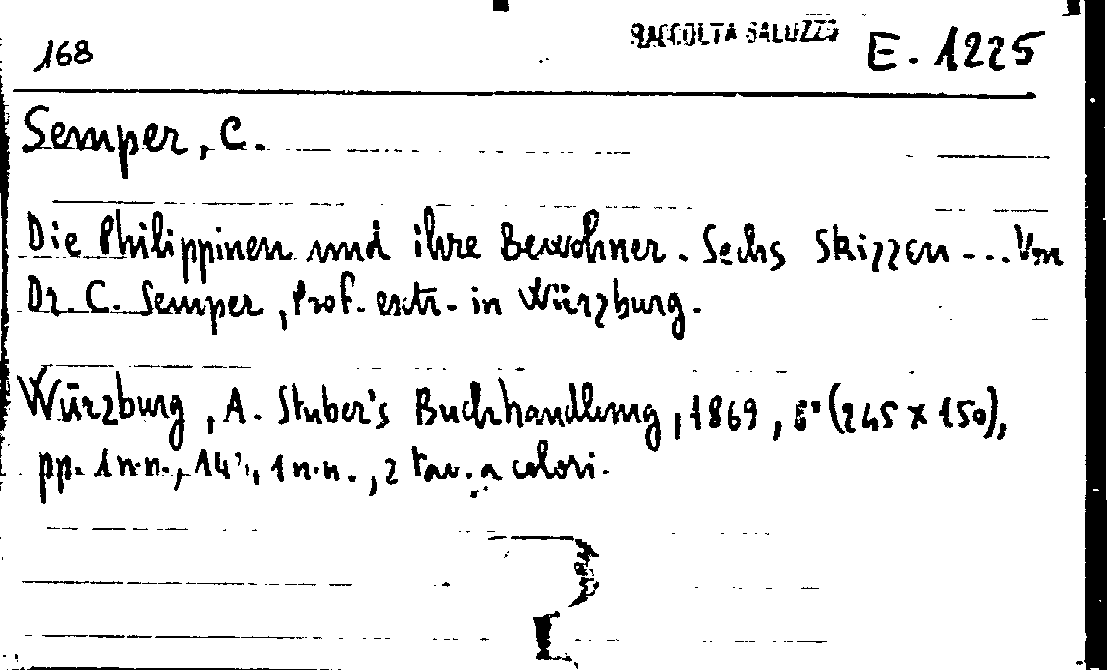 168 RACCOLTA SALUZZO E. 1225
Semper, C.
Die Philippinen und ihre Bewohner. Sechs Skizzen ... Von
Dr. C. Semper, Prof. extr. in Würzburg.
Würzburg, A. Stuber's Buchhandlung, 1869, 8° (245 x 150),
pp. 1 n.n., 1 n.n., 2 tav. a colori.